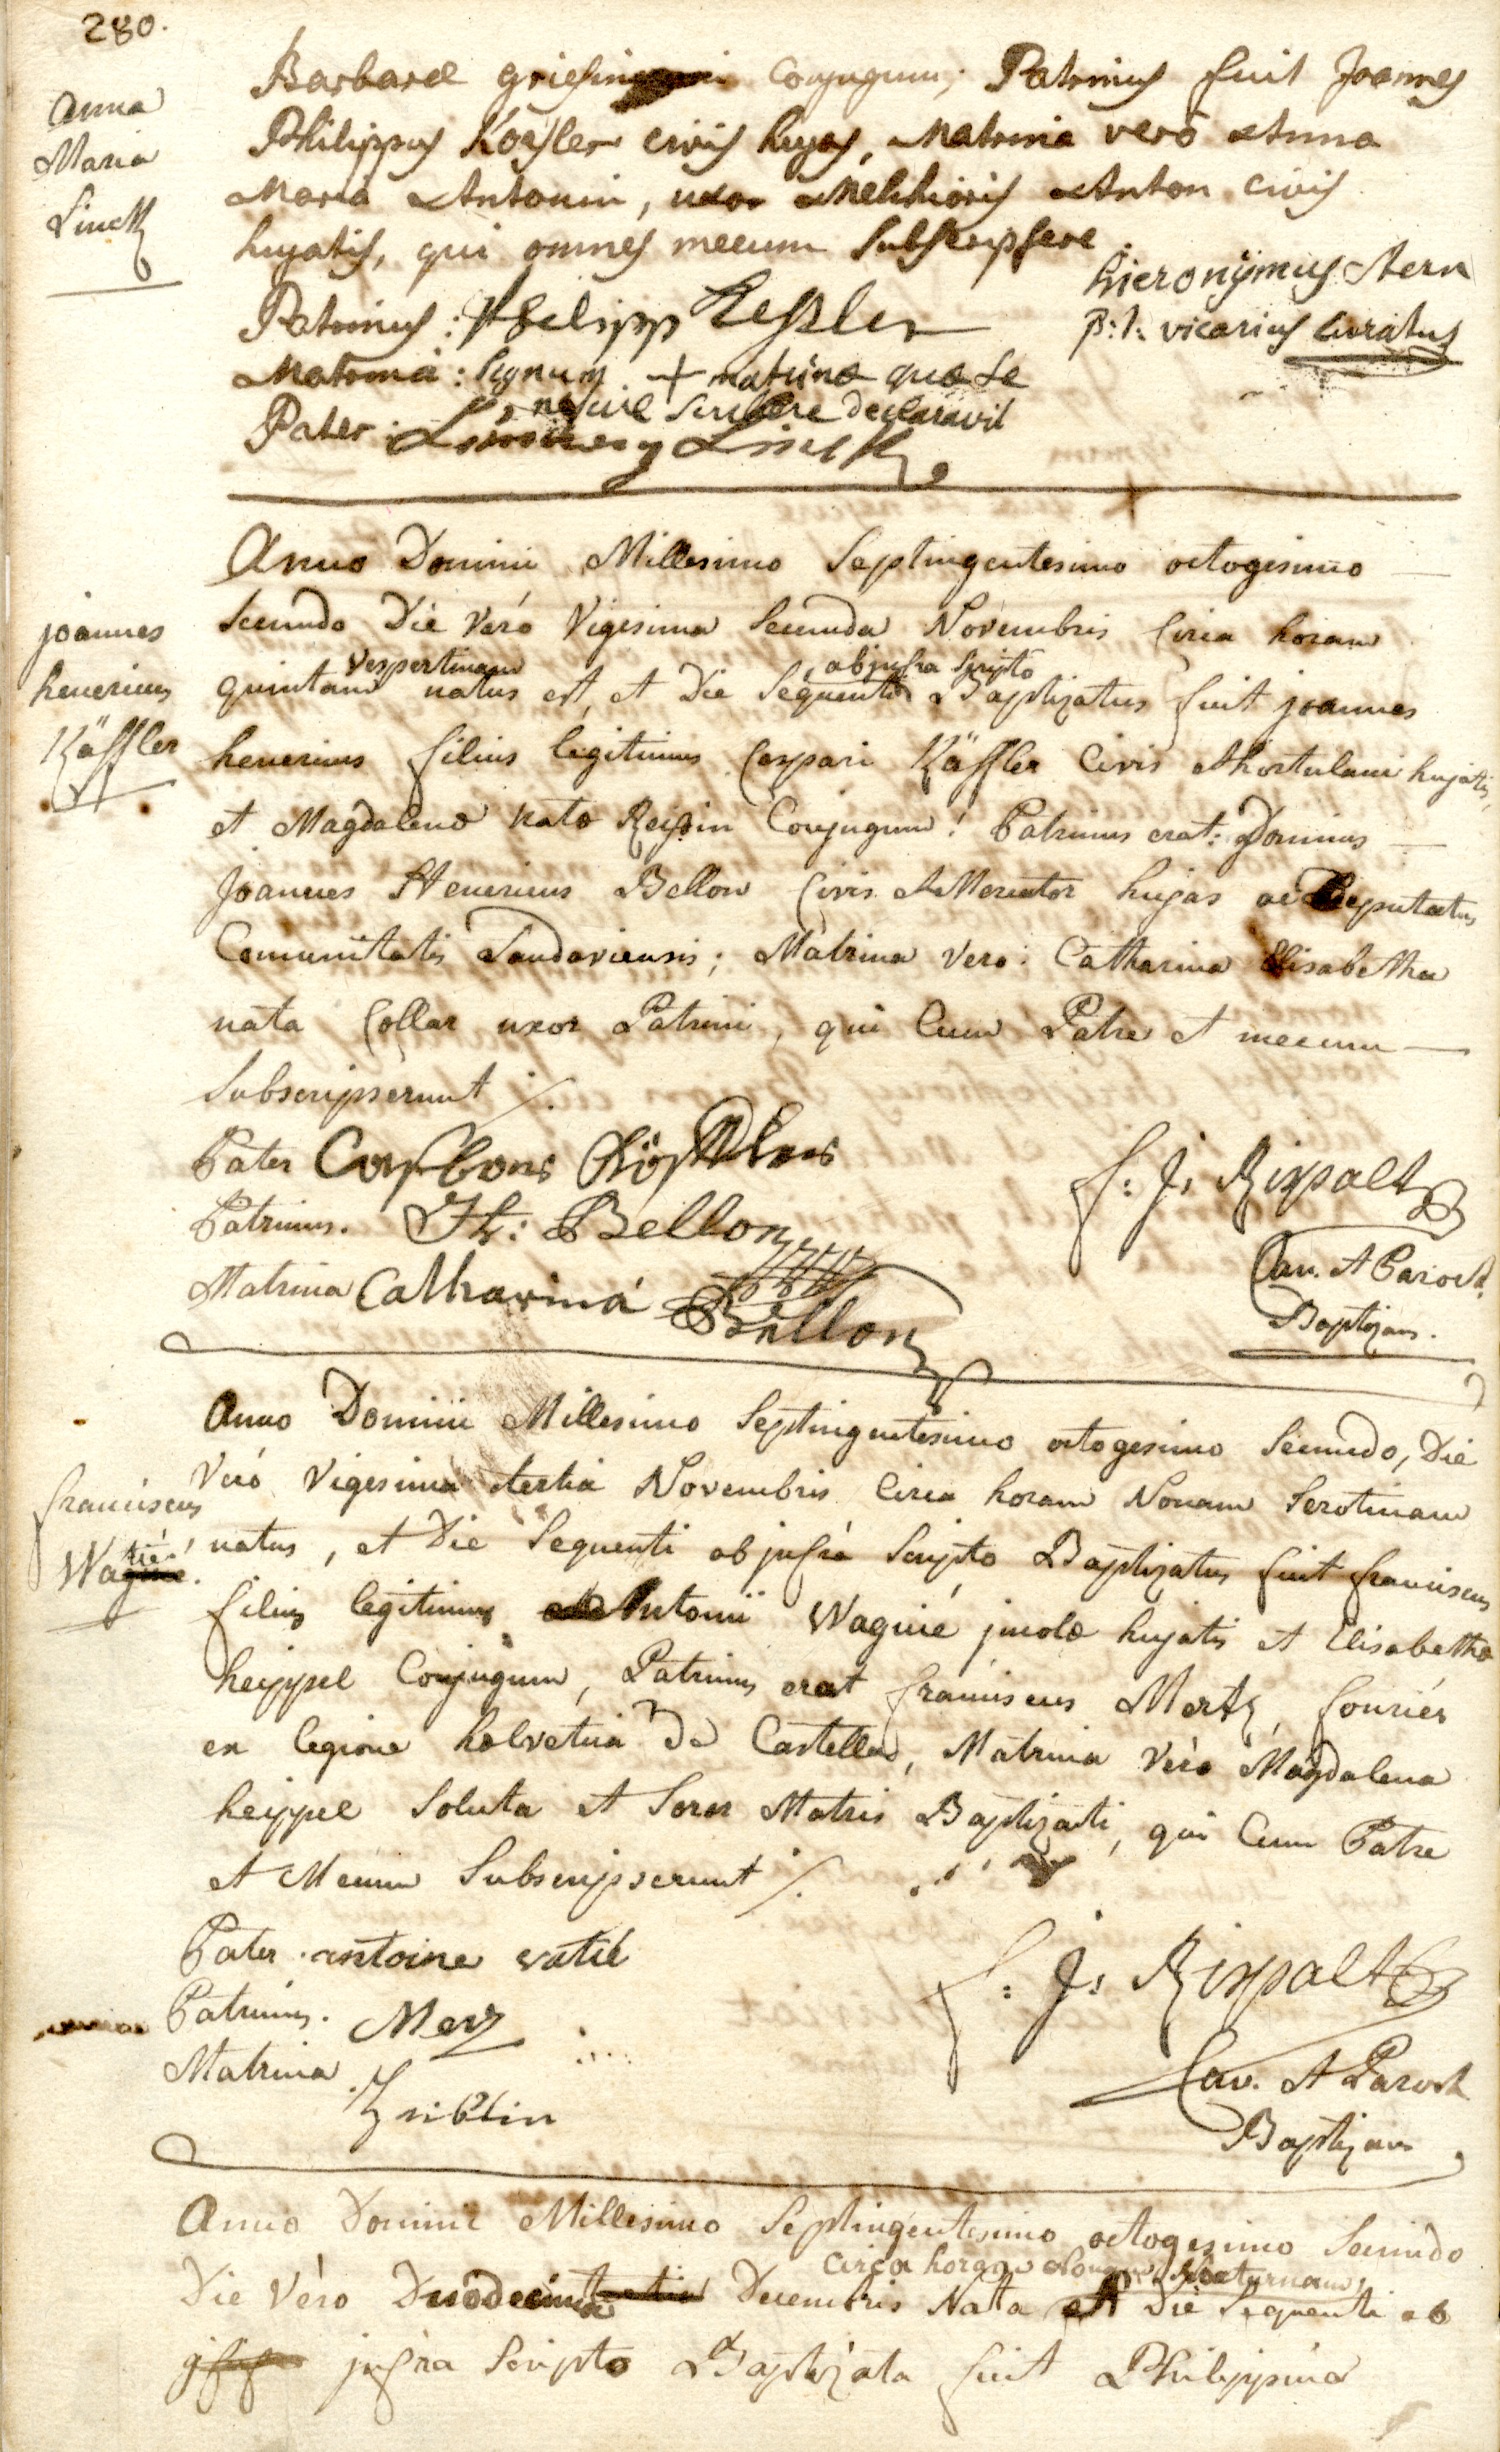 280.
Anna
Maria
Linck
Barbarae conjugum; Patrinus fuit Joannes
Philippus Koesler civis hujas, Matrina verò Anna
Maria Antonin, uxor Melchioris Anton civis
hujatis, qui omnes mecum subscripsere.
hieronÿmus Stern
p: t: vicarius curatus
Patrinus: Philipp Keßler
Matrina: signum + matrinae quae se
nescire scribere declaravit
Pater: Linck
joannes
henericus
Käffler
Anno Domini Millesimo Septingentesimo octogesimo
Secundo Die Veró Vigesima Secunda Novembris Circa horam
quintam vespertinam natus est, et Die Sequenti ab infra scripto Baptizatus fuit joannes
henericus filius legitimus Caspari Käffler Civis et hortulani hujatis,
et Magdalenae natae Reissin Conjugum: Patrinus erat: Dominus
Joannes Henericus Bellon Civis et Mercator hujas ac Deputatus
Comunitatis Landaviensis; Matrina Vero: Catharina Elisabetha
nata Collar uxor Patrini, qui Cum Patre et mecum
Subscripserunt ./.
Pater
Patrinus. Jh: Bellon
Matrina Catharina Bellon
f: J: Rixpalt
Can. et Paroch.
Baptizans.
franciscus
Watié.
Anno Domini Millesimo Septinguetesimo octogesimo Secundo, Die
Veró Vigesima tertia Novembris Circa horam Nonam Serotinam
natus, et Die Sequenti ab infrà Scripto Baptizatus fuit franciscus
filius legitimus Antonii Waguié incolae hujatis et Elisabetha
heippel Conjugum, Patrinus erat franciscus Mertz, fouriér
ex legione helvetica De Castella, Matrina Véro Magdalena
heippel Soluta et Soror Matris Baptizati, qui Cum Patre
et Mecum Subscripserunt ./.
Pater antoine watié
Patrinus. Merz
Matrina
f: J: Rixpalt
Can. et Paroch
Baptizans
Anno Domini Millesimo Septingentesimo octogesimo Secundo
Die Véro Duodecima Decembris circa horam Nonam Nocturnam, Nata et Die Sequenti ab
infra Scripto Baptizata fuit Philippina